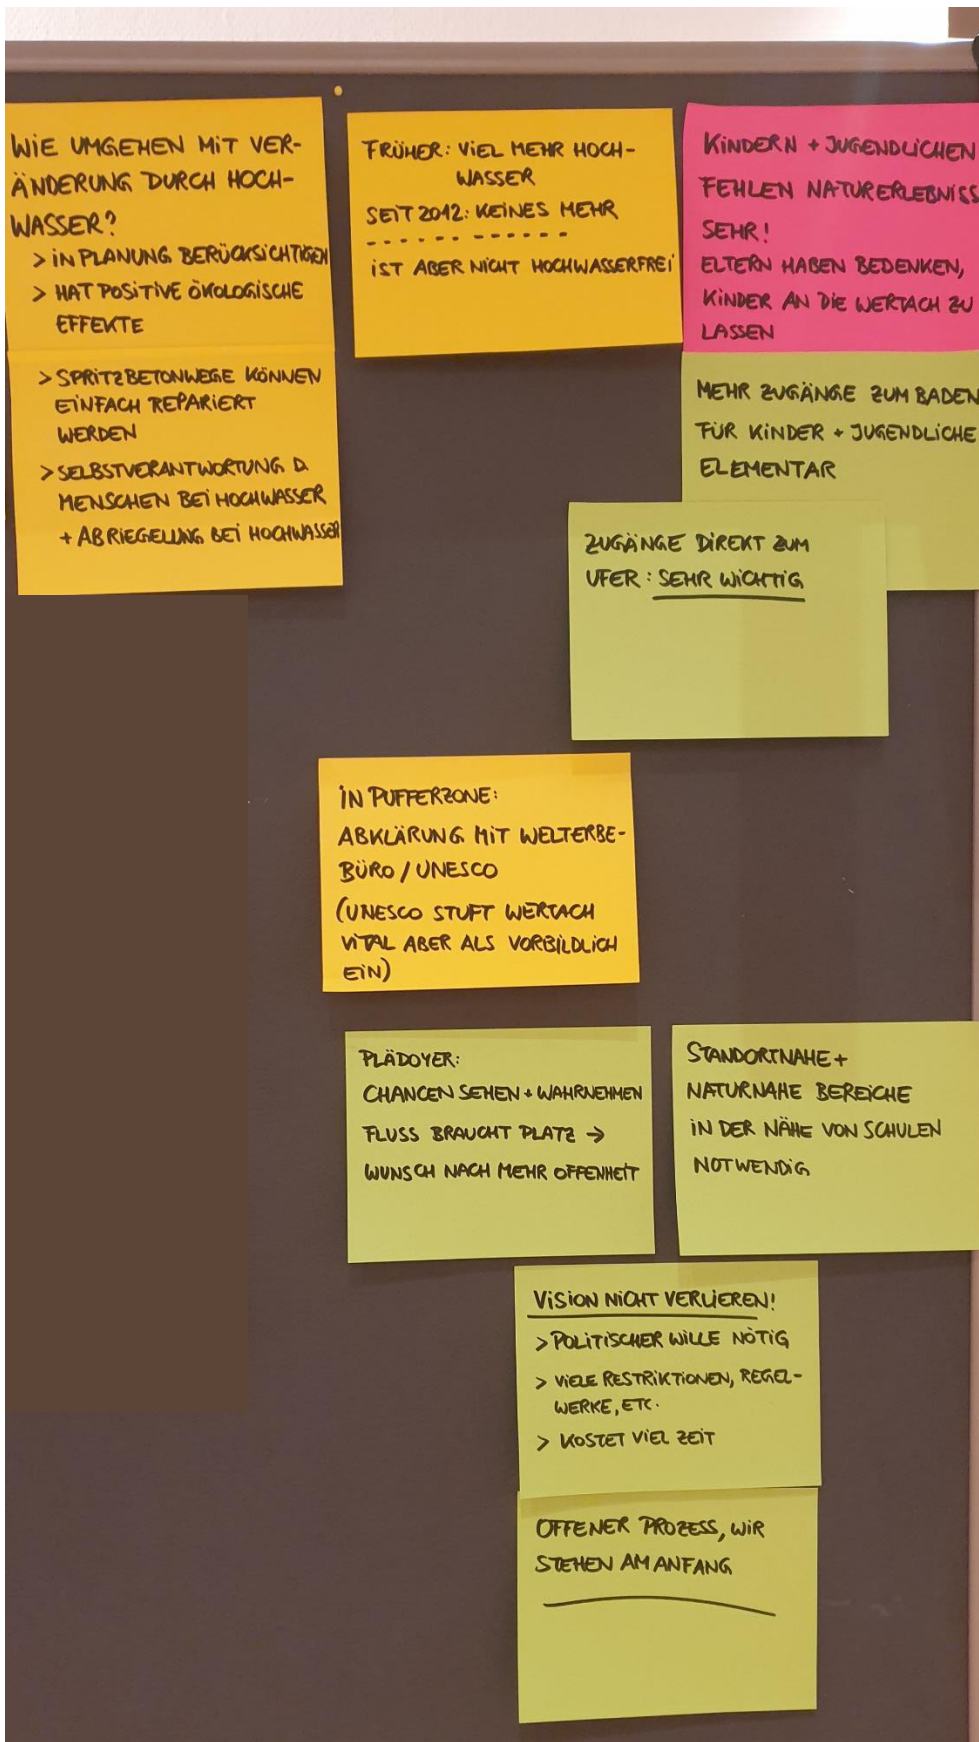 WIE UMGEHEN MIT VER-
ÄNDERUNG DURCH HOCH-
WASSER?
> IN PLANUNG BERÜCKSICHTIGEN
> HAT POSITIVE ÖKOLOGISCHE
EFFEKTE
> SPRITZBETONWEGE KÖNNEN
EINFACH REPARIERT
WERDEN
> SELBSTVERANTWORTUNG D.
MENSCHEN BEI HOCHWASSER
+ ABRIEGELUNG BEI HOCHWASSER
FRÜHER: VIEL MEHR HOCH-
WASSER
SEIT 2012: KEINES MEHR
IST ABER NICHT HOCHWASSERFREI
KINDERN + JUGENDLICHEN
FEHLEN NATURERLEBNISS
SEHR!
ELTERN HABEN BEDENKEN,
KINDER AN DIE WERTACH ZU
LASSEN
MEHR ZUGÄNGE ZUM BADEN
FÜR KINDER + JUGENDLICHE
ELEMENTAR
ZUGÄNGE DIREKT ZUM
UFER: SEHR WICHTIG
IN PUFFERZONE:
ABKLÄRUNG MIT WELTERBE-
BÜRO / UNESCO
(UNESCO STUFT WERTACH
VITAL ABER ALS VORBILDLICH
EIN)
PLÄDOYER:
CHANCEN SEHEN + WAHRNEHMEN
FLUSS BRAUCHT PLATZ →
WUNSCH NACH MEHR OFFENHEIT
STANDORTNAHE +
NATURNAHE BEREICHE
IN DER NÄHE VON SCHULEN
NOTWENDIG
VISION NICHT VERLIEREN!
> POLITISCHER WILLE NÖTIG
> VIELE RESTRIKTIONEN, REGEL-
WERKE, ETC.
> KOSTET VIEL ZEIT
OFFENER PROZESS, WIR
STEHEN AM ANFANG